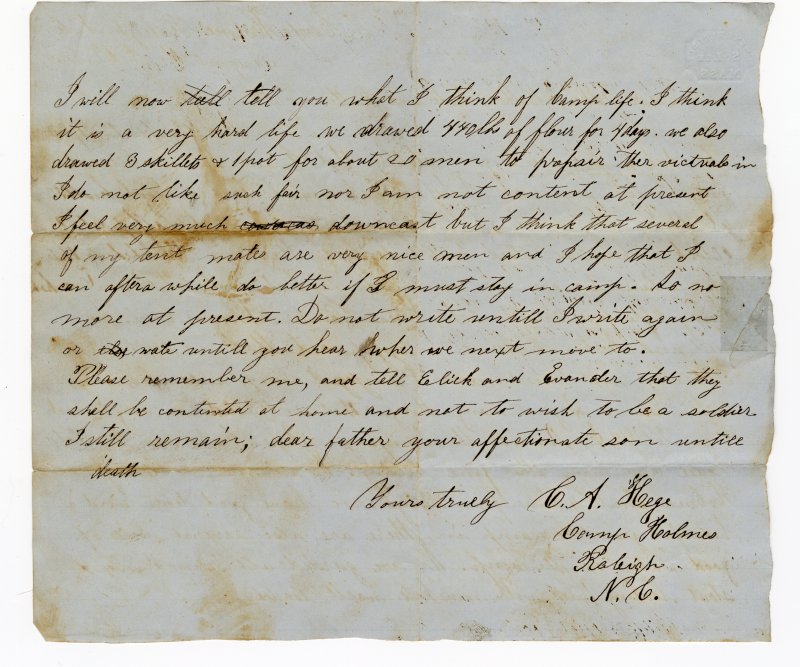 I will now tell tell you what I think of Camp life. I think
it is a very hard life we drawed of flour for 4 days. we also
drawed 3 skillets & 1 pot for about 20 men to prepair ther victuals in
I do not like such fair nor I am not content at present
I feel very much downcast but I think that several
of my tent mates are very nice men and I hope that I
can after a while do better if I must stay in camp. So no
more at present. Do not write untill I write again
or wate untill you hear wher we next move to.
Please remember me, and tell Elick and Evander that they
shall be contented at home and not to wish to be a soldier
I still remain; dear father your affectionate son untill
death
Yours truely C. A. Hege
Camp Holmes
Raleigh
N. C.